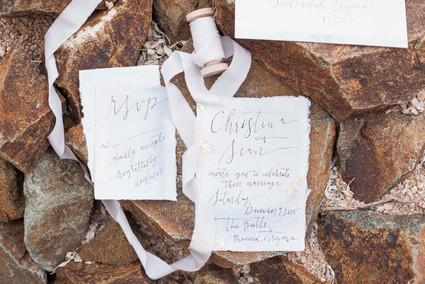 Scottsdale, Arizona
RSVP
gladly accepts
regretfully
declines
Christina
&
Sean
invite you to celebrate
their marriage
Saturday
December 9, 2015
Phoenix, Arizona